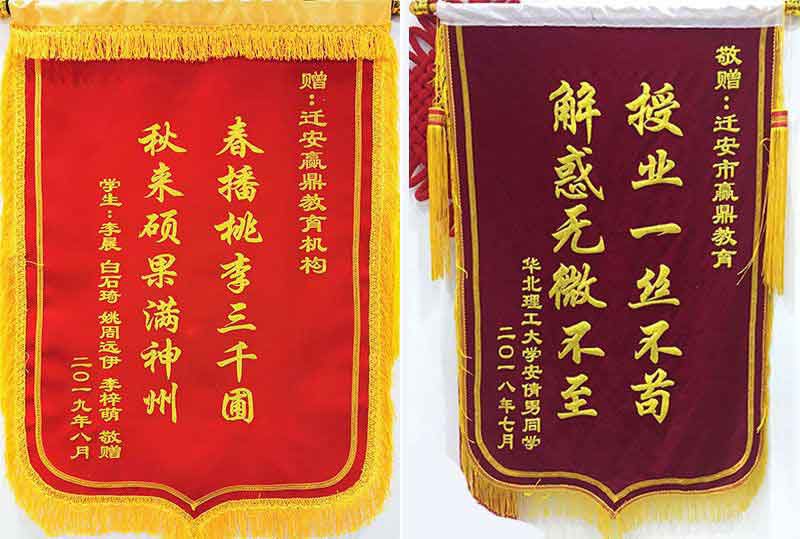 赠：迁安赢鼎教育机构
春播桃李三千圃
秋来硕果满神州
学生：李晨 白石琦 姚周远伊 李梓萌 敬赠
二〇一九年八月
敬赠：迁安市赢鼎教育
授业一丝不苟
解惑无微不至
华北理工大学安倩男同学
二〇一八年七月